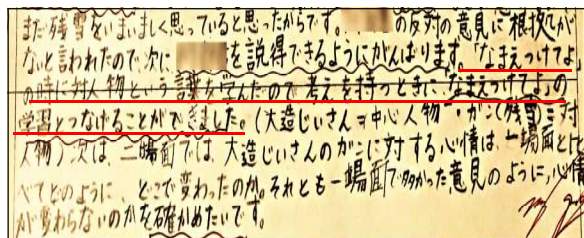 まだ残雪をいまいましく思っていると思ったからです。の反対の意見に根拠が
ないと言われたので次にを説得できるようにがんばります。「なまえつけてよ」
の時に対人物という言葉を学んだので考えを持つときに、「なまえつけてよ」の
学習とつなげることができました。(大造じいさん=中心人物 がん(残雪)=対
人物)次は、二場面では、大造じいさんのがんに対する心情は、一場面とく
べてどのように、どこで変わったのか。それとも一場面で多かった意見のように、心情
が変わらないのかを確かめたいです。